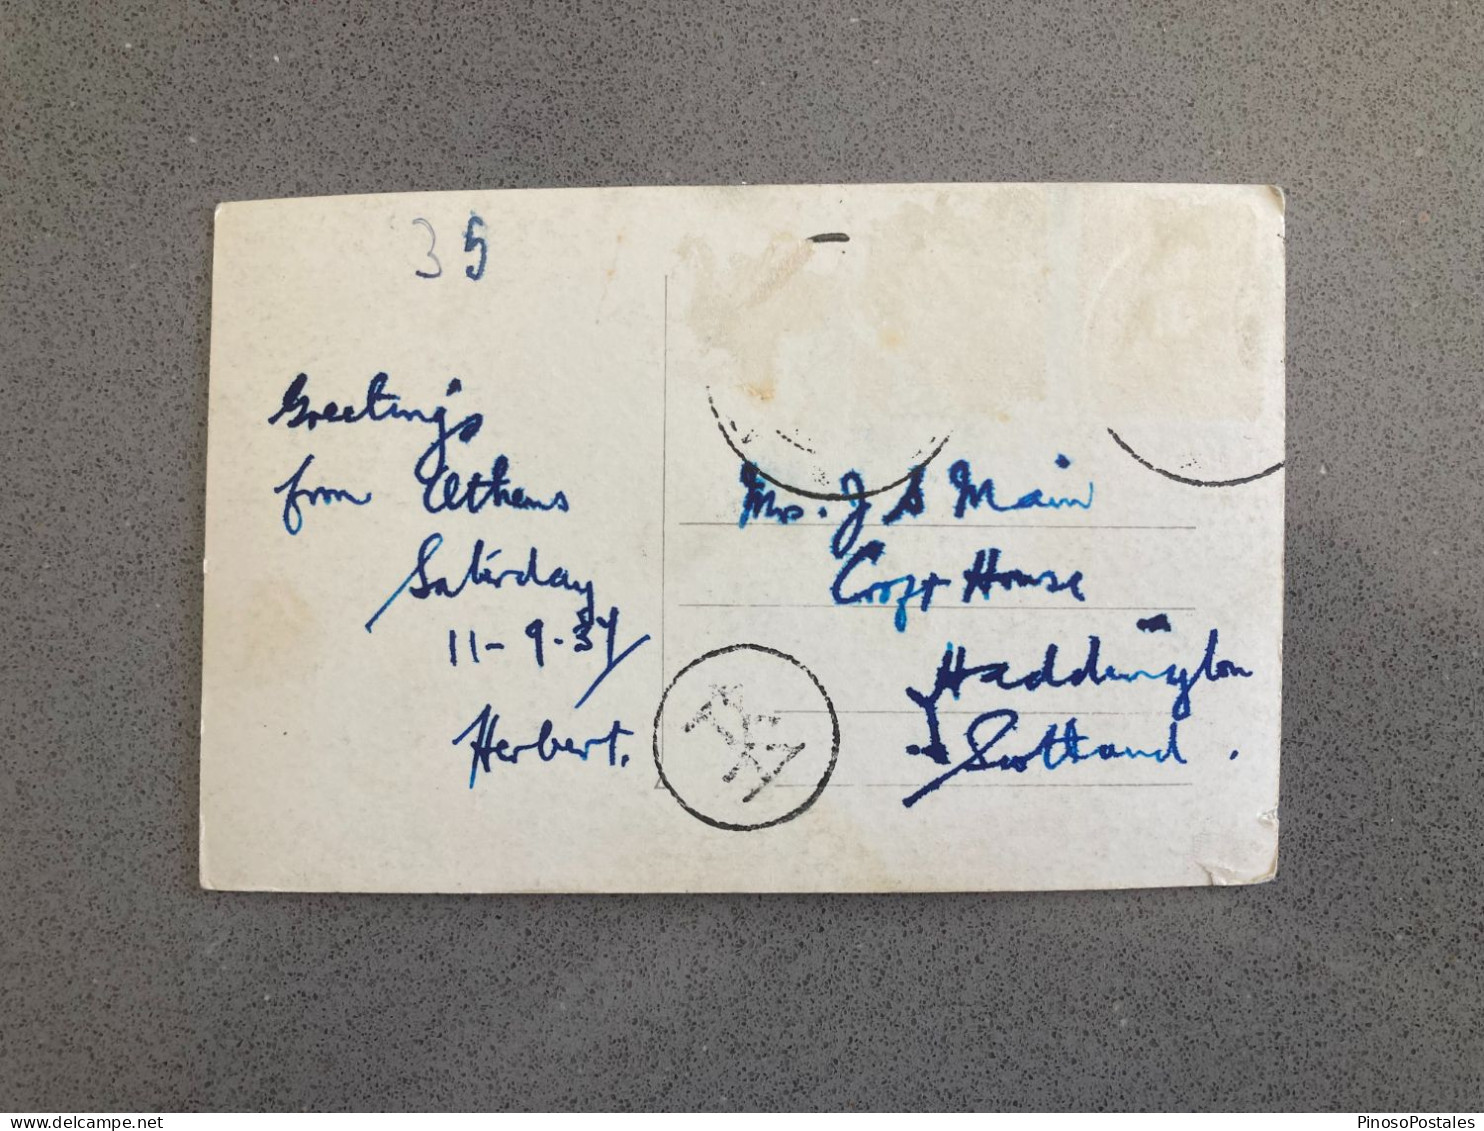 35
Greetings
from Athens
Saturday
11-9-37
Herbert.
Mrs. J S Main
Croft House
Haddington
Scotland.
PinosoPostales